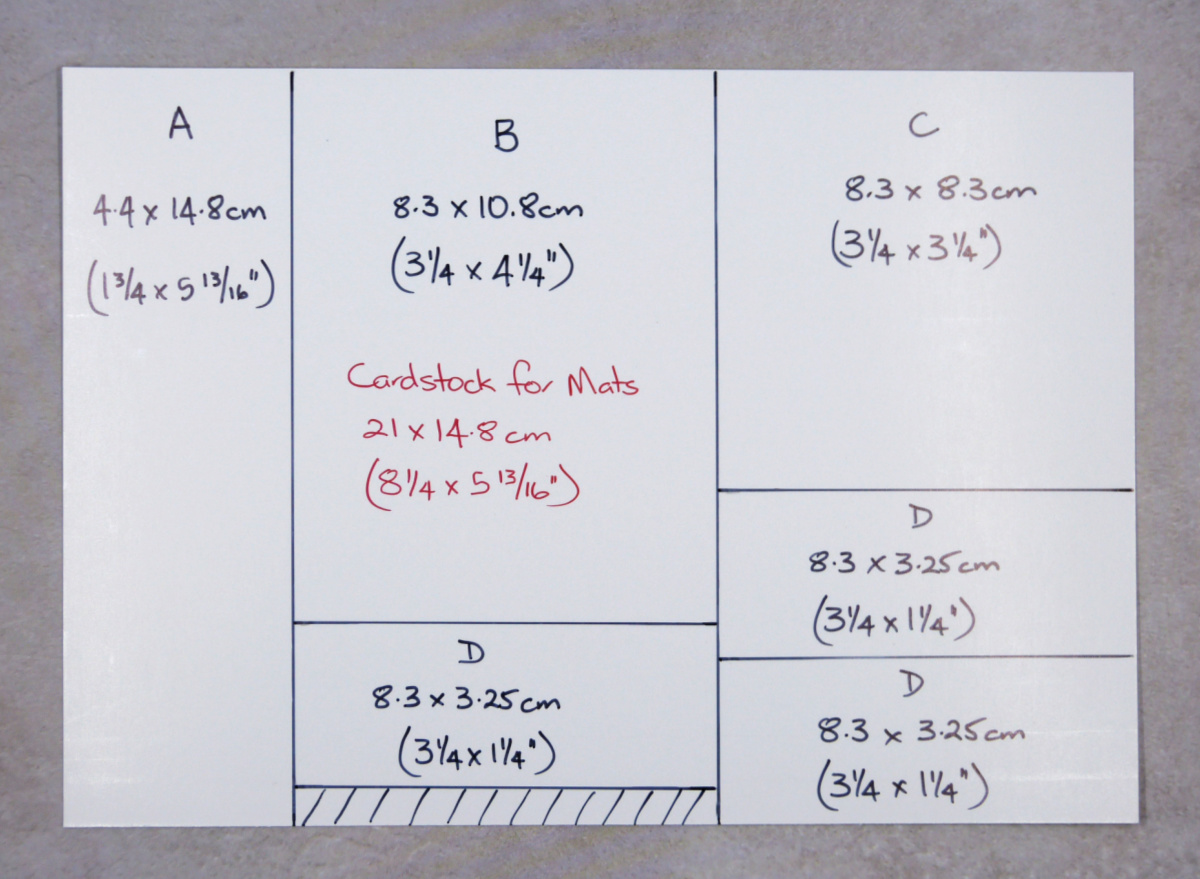 A
4.4 x 14.8cm
(1 3/4 x 5 13/16")
B
8.3 x 10.8cm
(3 1/4 x 4 1/4")
Cardstock for Mats
21 x 14.8 cm
(8 1/4 x 5 13/16")
D
8.3 x 3.25cm
(3 1/4 x 1 1/4")
C
8.3 x 8.3cm
(3 1/4 x 3 1/4")
D
8.3 x 3.25cm
(3 1/4 x 1 1/4")
D
8.3 x 3.25cm
(3 1/4 x 1 1/4")